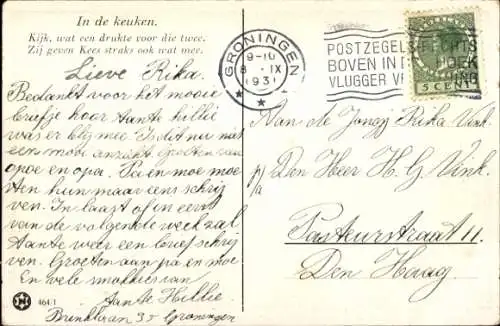 In de keuken.
Kijk, wat een drukte voor die twee.
Zij geven Kees straks ook wat mee.
Lieve Rika.
Bedankt voor het mooie
briefje hoor Aante Hillie
was er blij mee. Is dit nu niet
eens mooi anzicht. Groeten van
opoe en opa. Pa en moe moe
sten hun maar eens schrij
ven. In laazt of in eerst
van de volgende week zal
Aante weer een brief schrij
ven. Groeten aan pa en moe
En vele van
Aante Hillie.
Brinklaan 35 Groningen
464/1
GRONINGEN
9-10
8 IX
1931
POSTZEGELS RECHTS
BOVEN IN HOEK
VLUGGER
5 CENT
Aan de Jongej Rika Vink.
p/a Den Heer H G Vink.
Pasteurstraat 11.
Den Haag